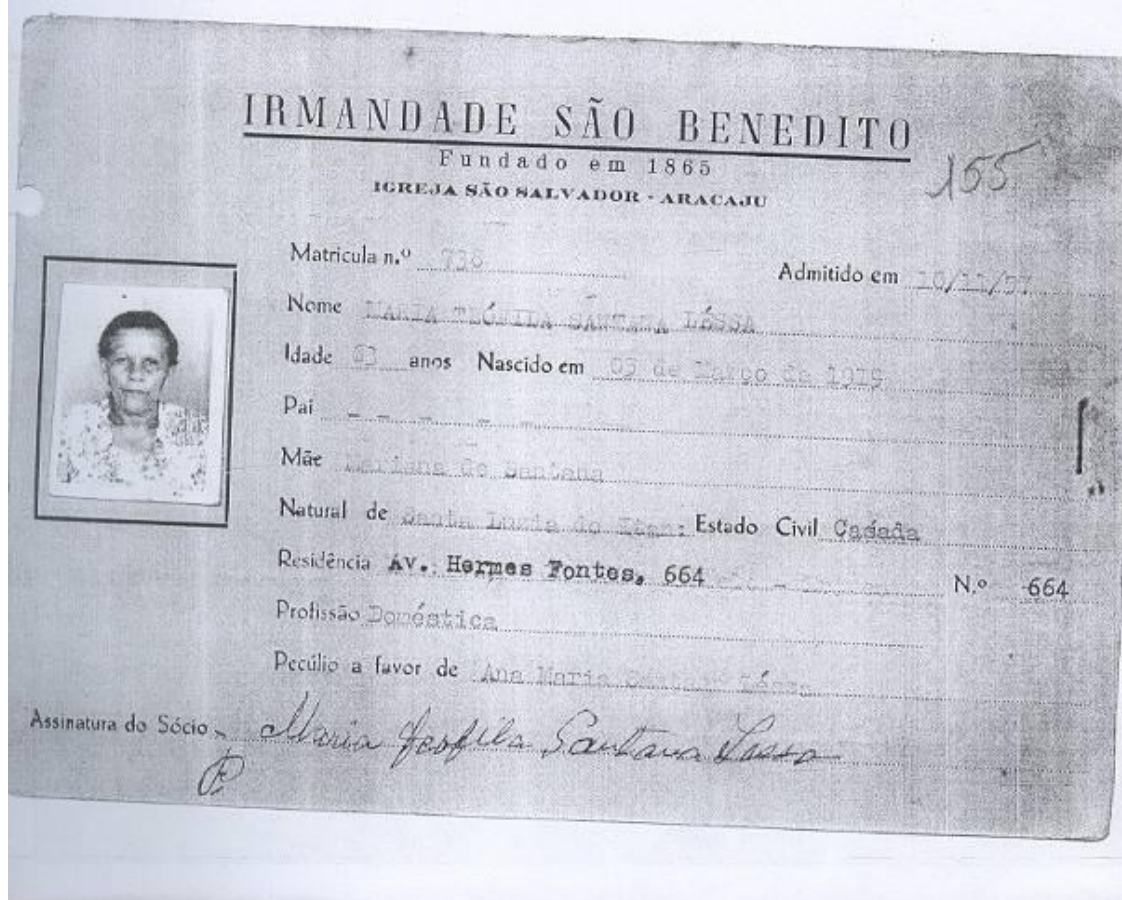 IRMANDADE SÃO BENEDITO
Fundado em 1865
IGREJA SÃO SALVADOR - ARACAJU
155
Matricula n.º 738
Admitido em 10/11/
Nome MARIA TEÓFILA SANTANA LÉSSA
Idade 63 anos Nascido em 03 de Março de 1919
Pai - - - - -
Mãe Mariana de Santana
Natural de Santa Luzia do Itan: Estado Civil Casada
Residência Av. Hermes Fontes, 664 N.º 664
Profissão Doméstica
Pecúlio a favor de Ana Maria Santana Léssa
Assinatura do Sócio Maria Teofila Santana Lessa